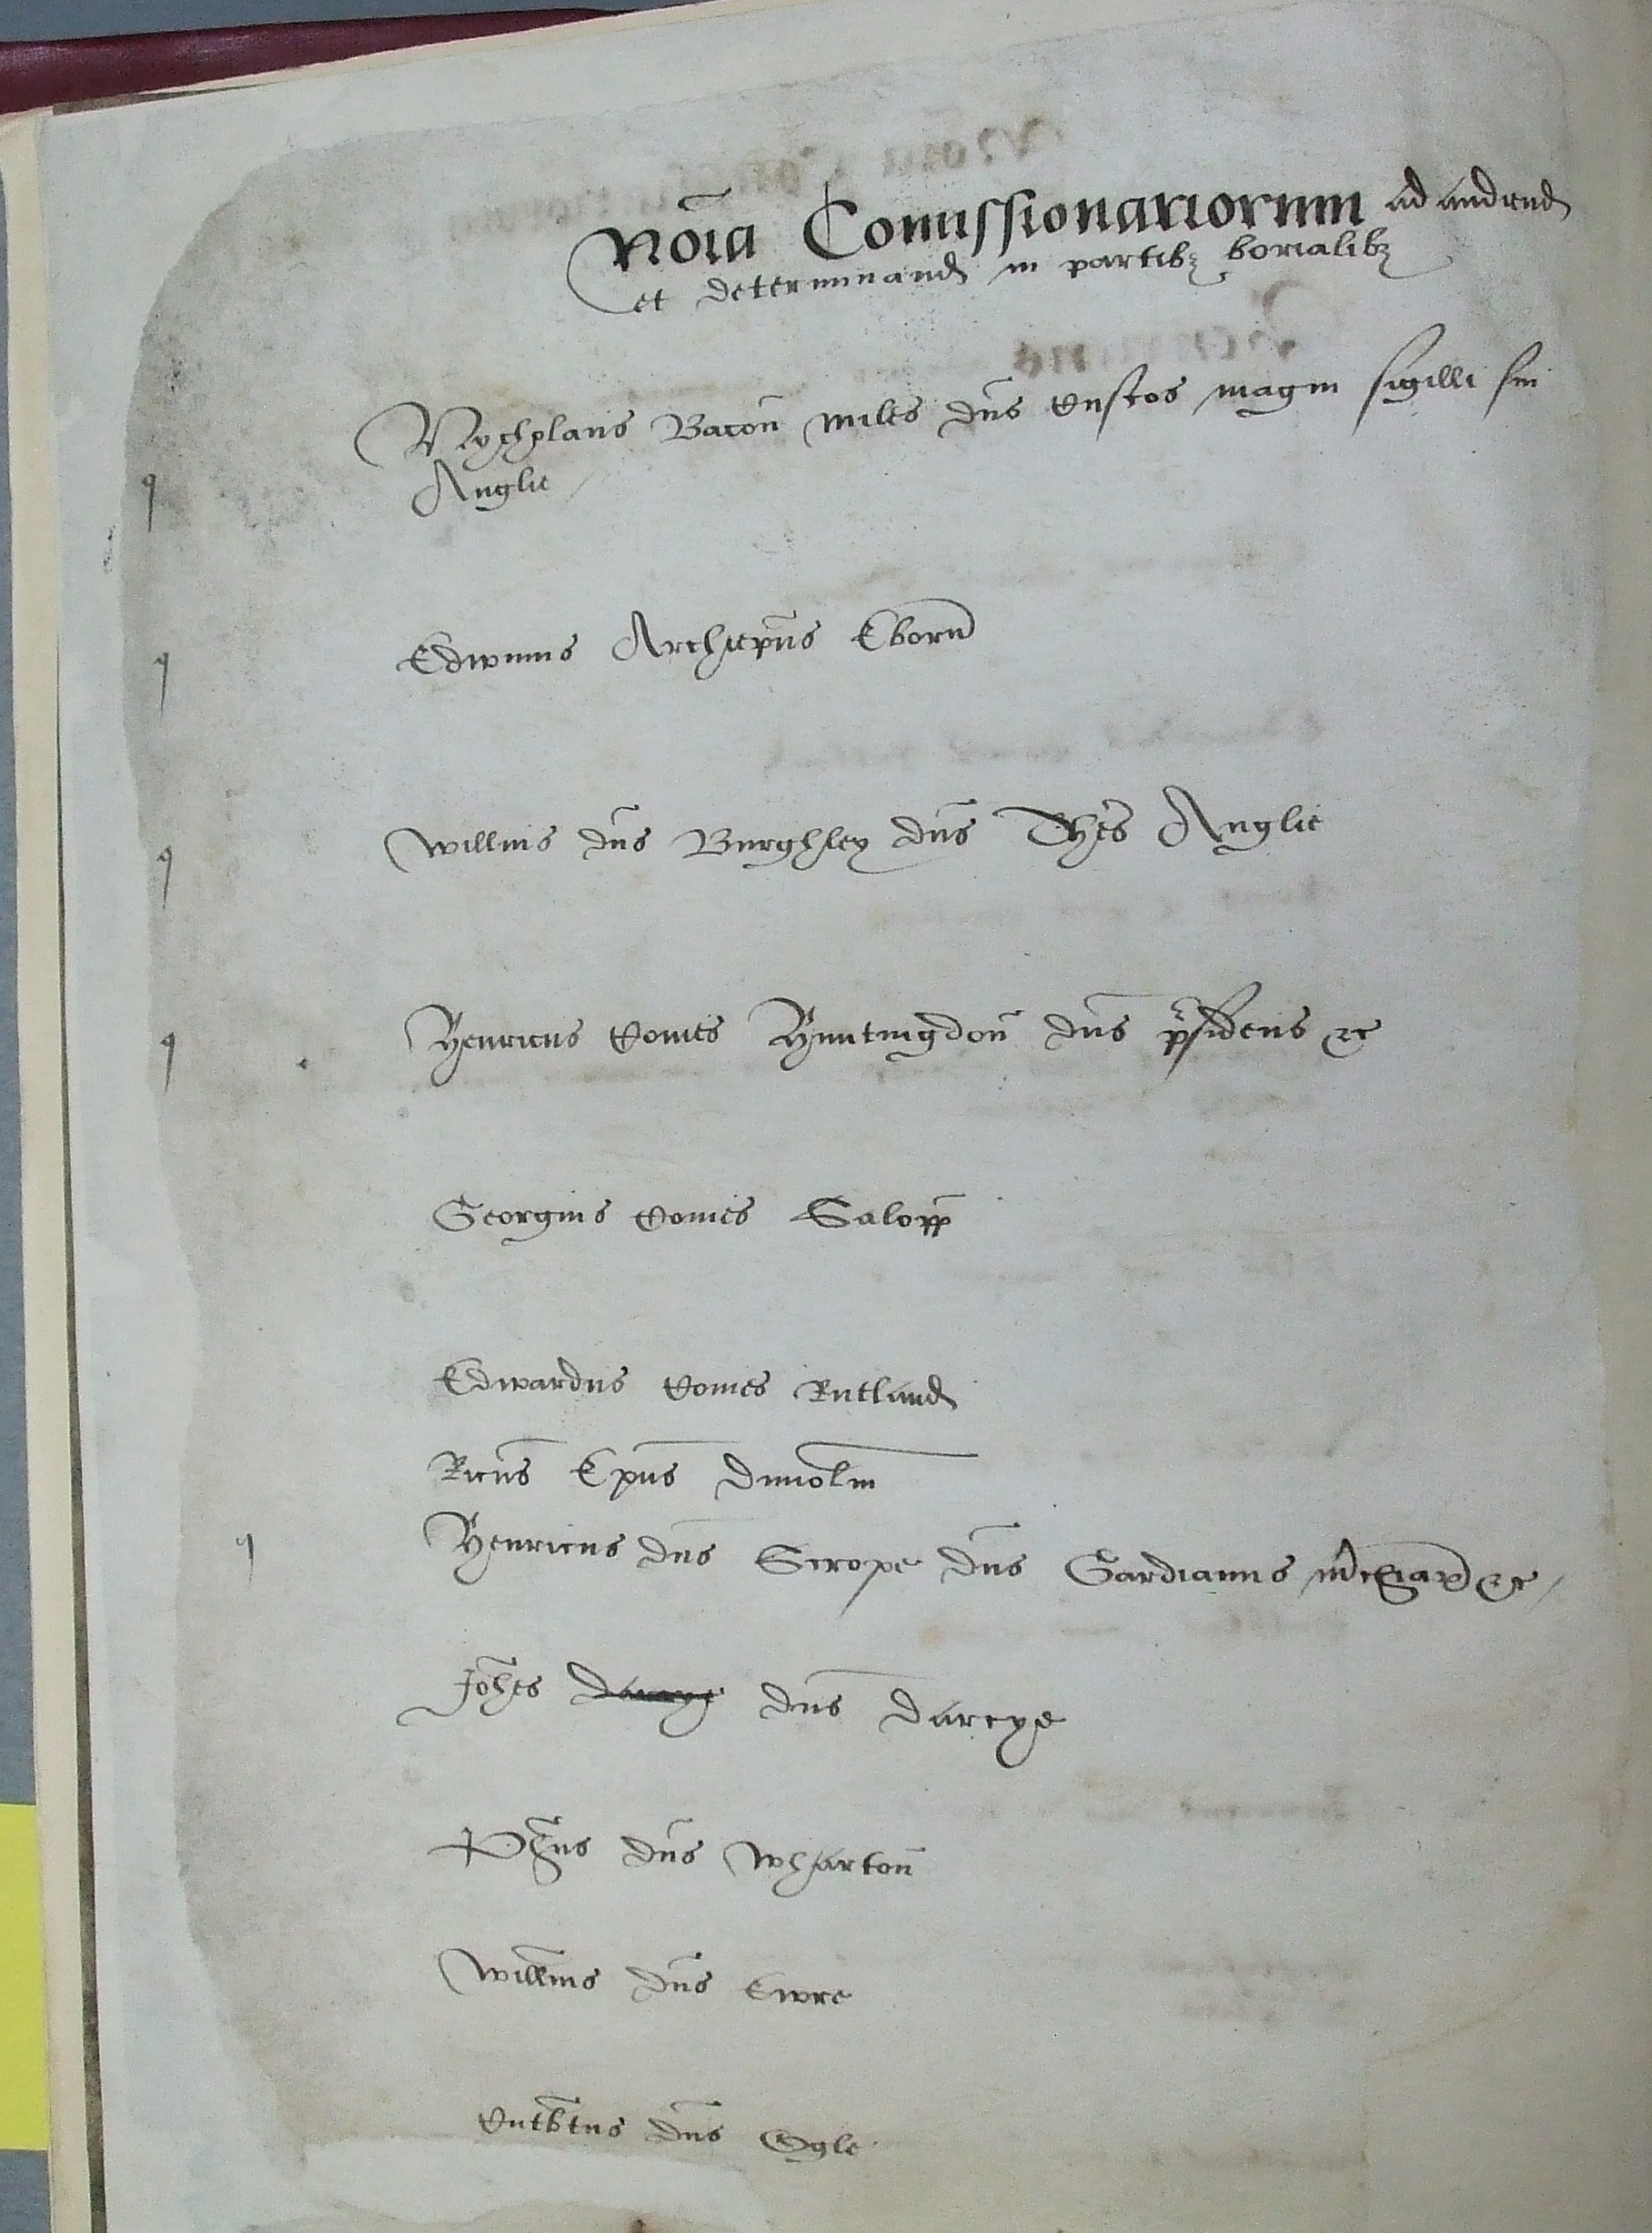 Noīa Comissionariorum ad audiend
et determinand in partibȝ borialibȝ
Nycholaus Bacon miles dn̄s Custos magni sigilli sui
Anglie
Edwinus Archiep̄us Eborū
Willm̄s dn̄s Burghley dn̄s Thes̄ Anglie
Henricus Comes Huntingdon dn̄s p̄sidens &c
Georgius Comes Salopp
Edwardus Comes Rutland
Ricūs Ep̄us Dunolm̄
Henricus dn̄s Scrope dn̄s Gardianus &c
Joh̄es Darcye dn̄s Darcye
Ph̄us dn̄s Wharton
Willm̄s dn̄s Ewre
Cutb̄tus dn̄s Ogle